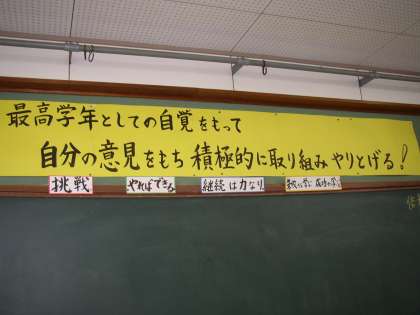 最高学年としての自覚をもって
自分の意見をもち 積極的に取り組みやりとげる!
挑戦
やればできる
継続は力なり